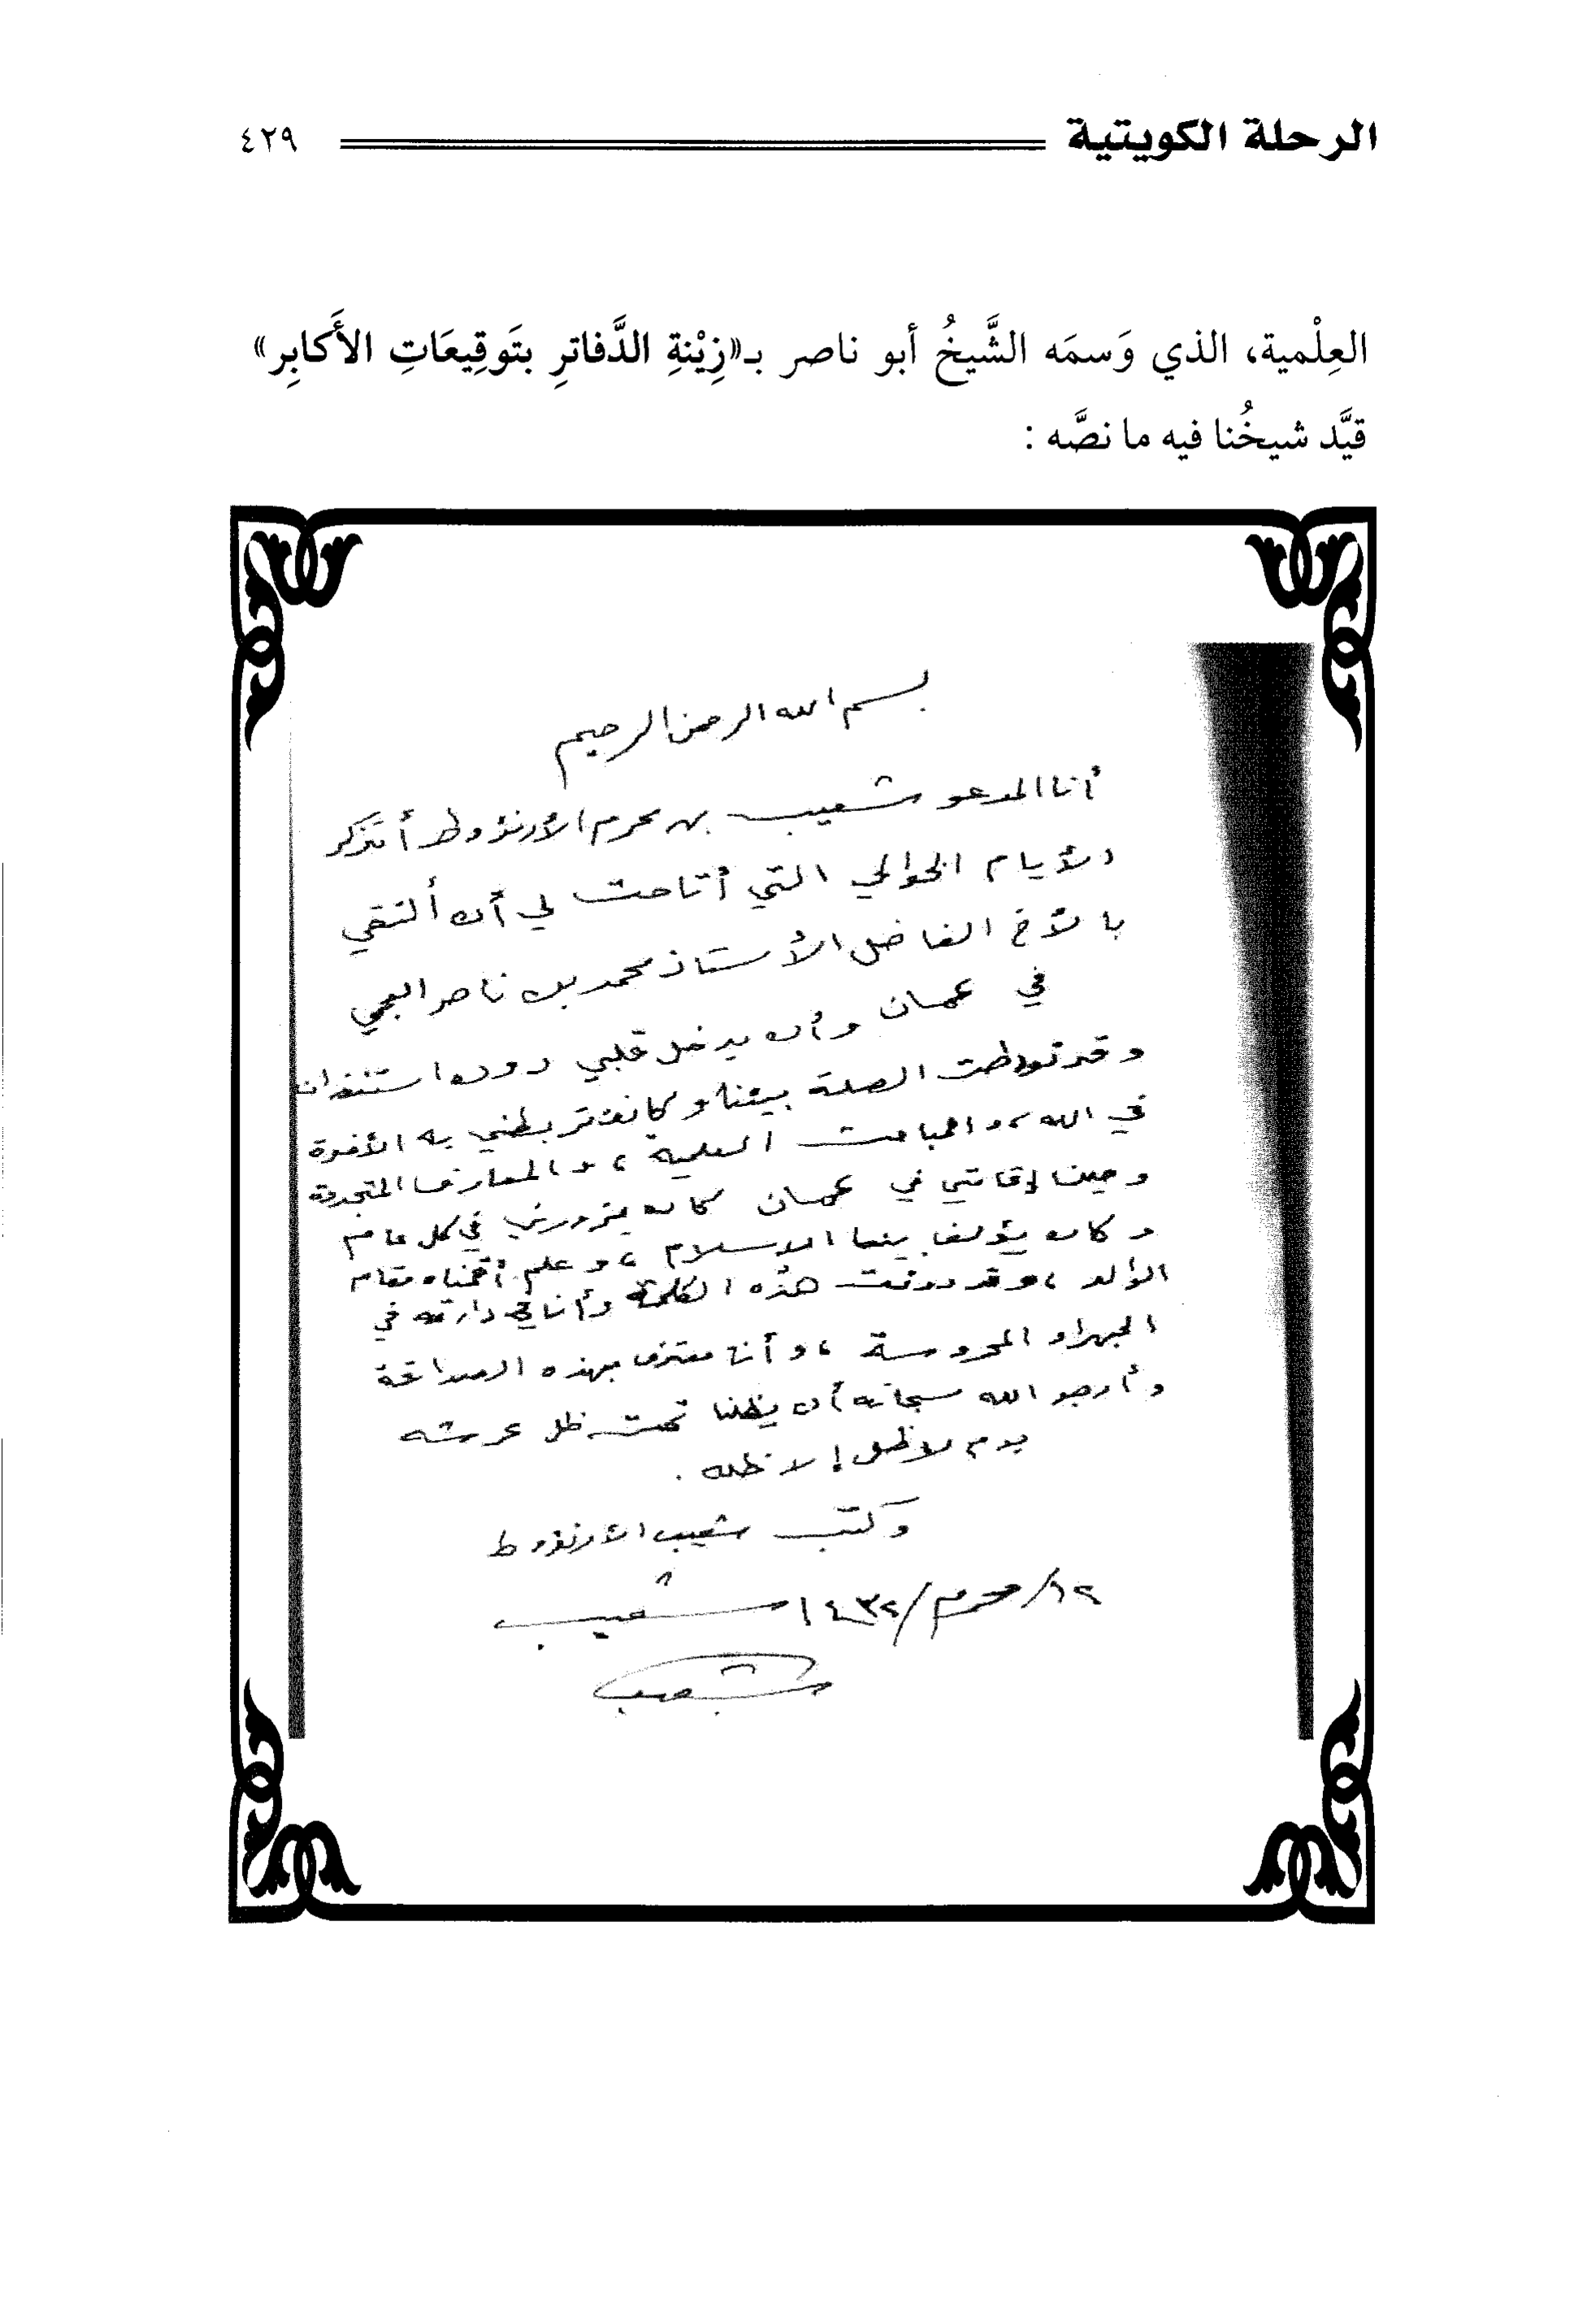 الرحلة الكويتية
٤٢٩
العِلْمية، الذي وَسمَه الشَّيخُ أبو ناصر بـ«زِيْنةِ الدَّفاترِ بتَوقِيعَاتِ الأَكابِر»
قيَّد شيخُنا فيه ما نصَّه :
بسم الله الرحمن الرحيم
أنا المدعو شعيب بن محرم الأرنؤوط أتذكر
الأيام الخوالي التي أتاحت لي أن ألتقي
بالأخ الفاضل الأستاذ محمد بن ناصر العجمي
في عمان وأن يدخل قلبي دون استئذان
وقد توطدت الصلة بيننا وكانت تربطني به الأخوة
في الله، والمباحث العلمية، والمعارف المتجددة
وحين إقامتي في عمان كان يزورني في كل عام
وكان يؤلف بيننا الاسلام، وعلم أقمناه مقام
الوالد، وقد دونت هذه الكلمة وأنا في دارته في
الجهراء المحروسة، وأنا معتز بهذه الصداقة
وأرجو الله سبحانه أن يظلنا تحت ظل عرشه
يوم لا ظل إلا ظله .
وكتب شعيب الأرنؤوط
١٢/محرم/١٤٣٢ شعيب
شعيب